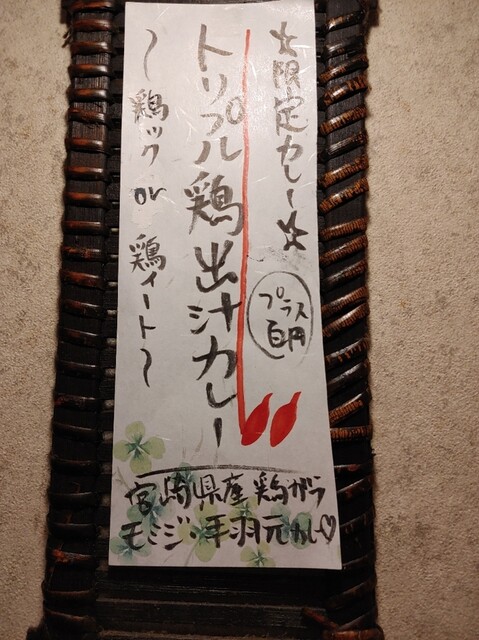 ☆限定カレー☆
プラス
百円
トリプル鶏出汁カレー
～鶏ック or 鶏ィート～
宮崎県産鶏ガラ
モミジ・手羽元カレー♡